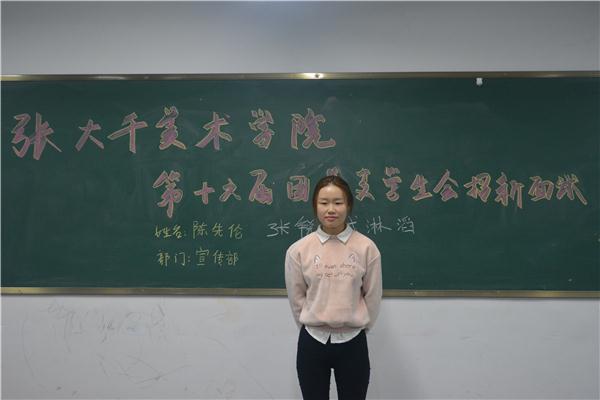 张大千美术学院
第十六届团 支学生会招新面试
姓名:陈先伦 张 淋滔
部门:宣传部